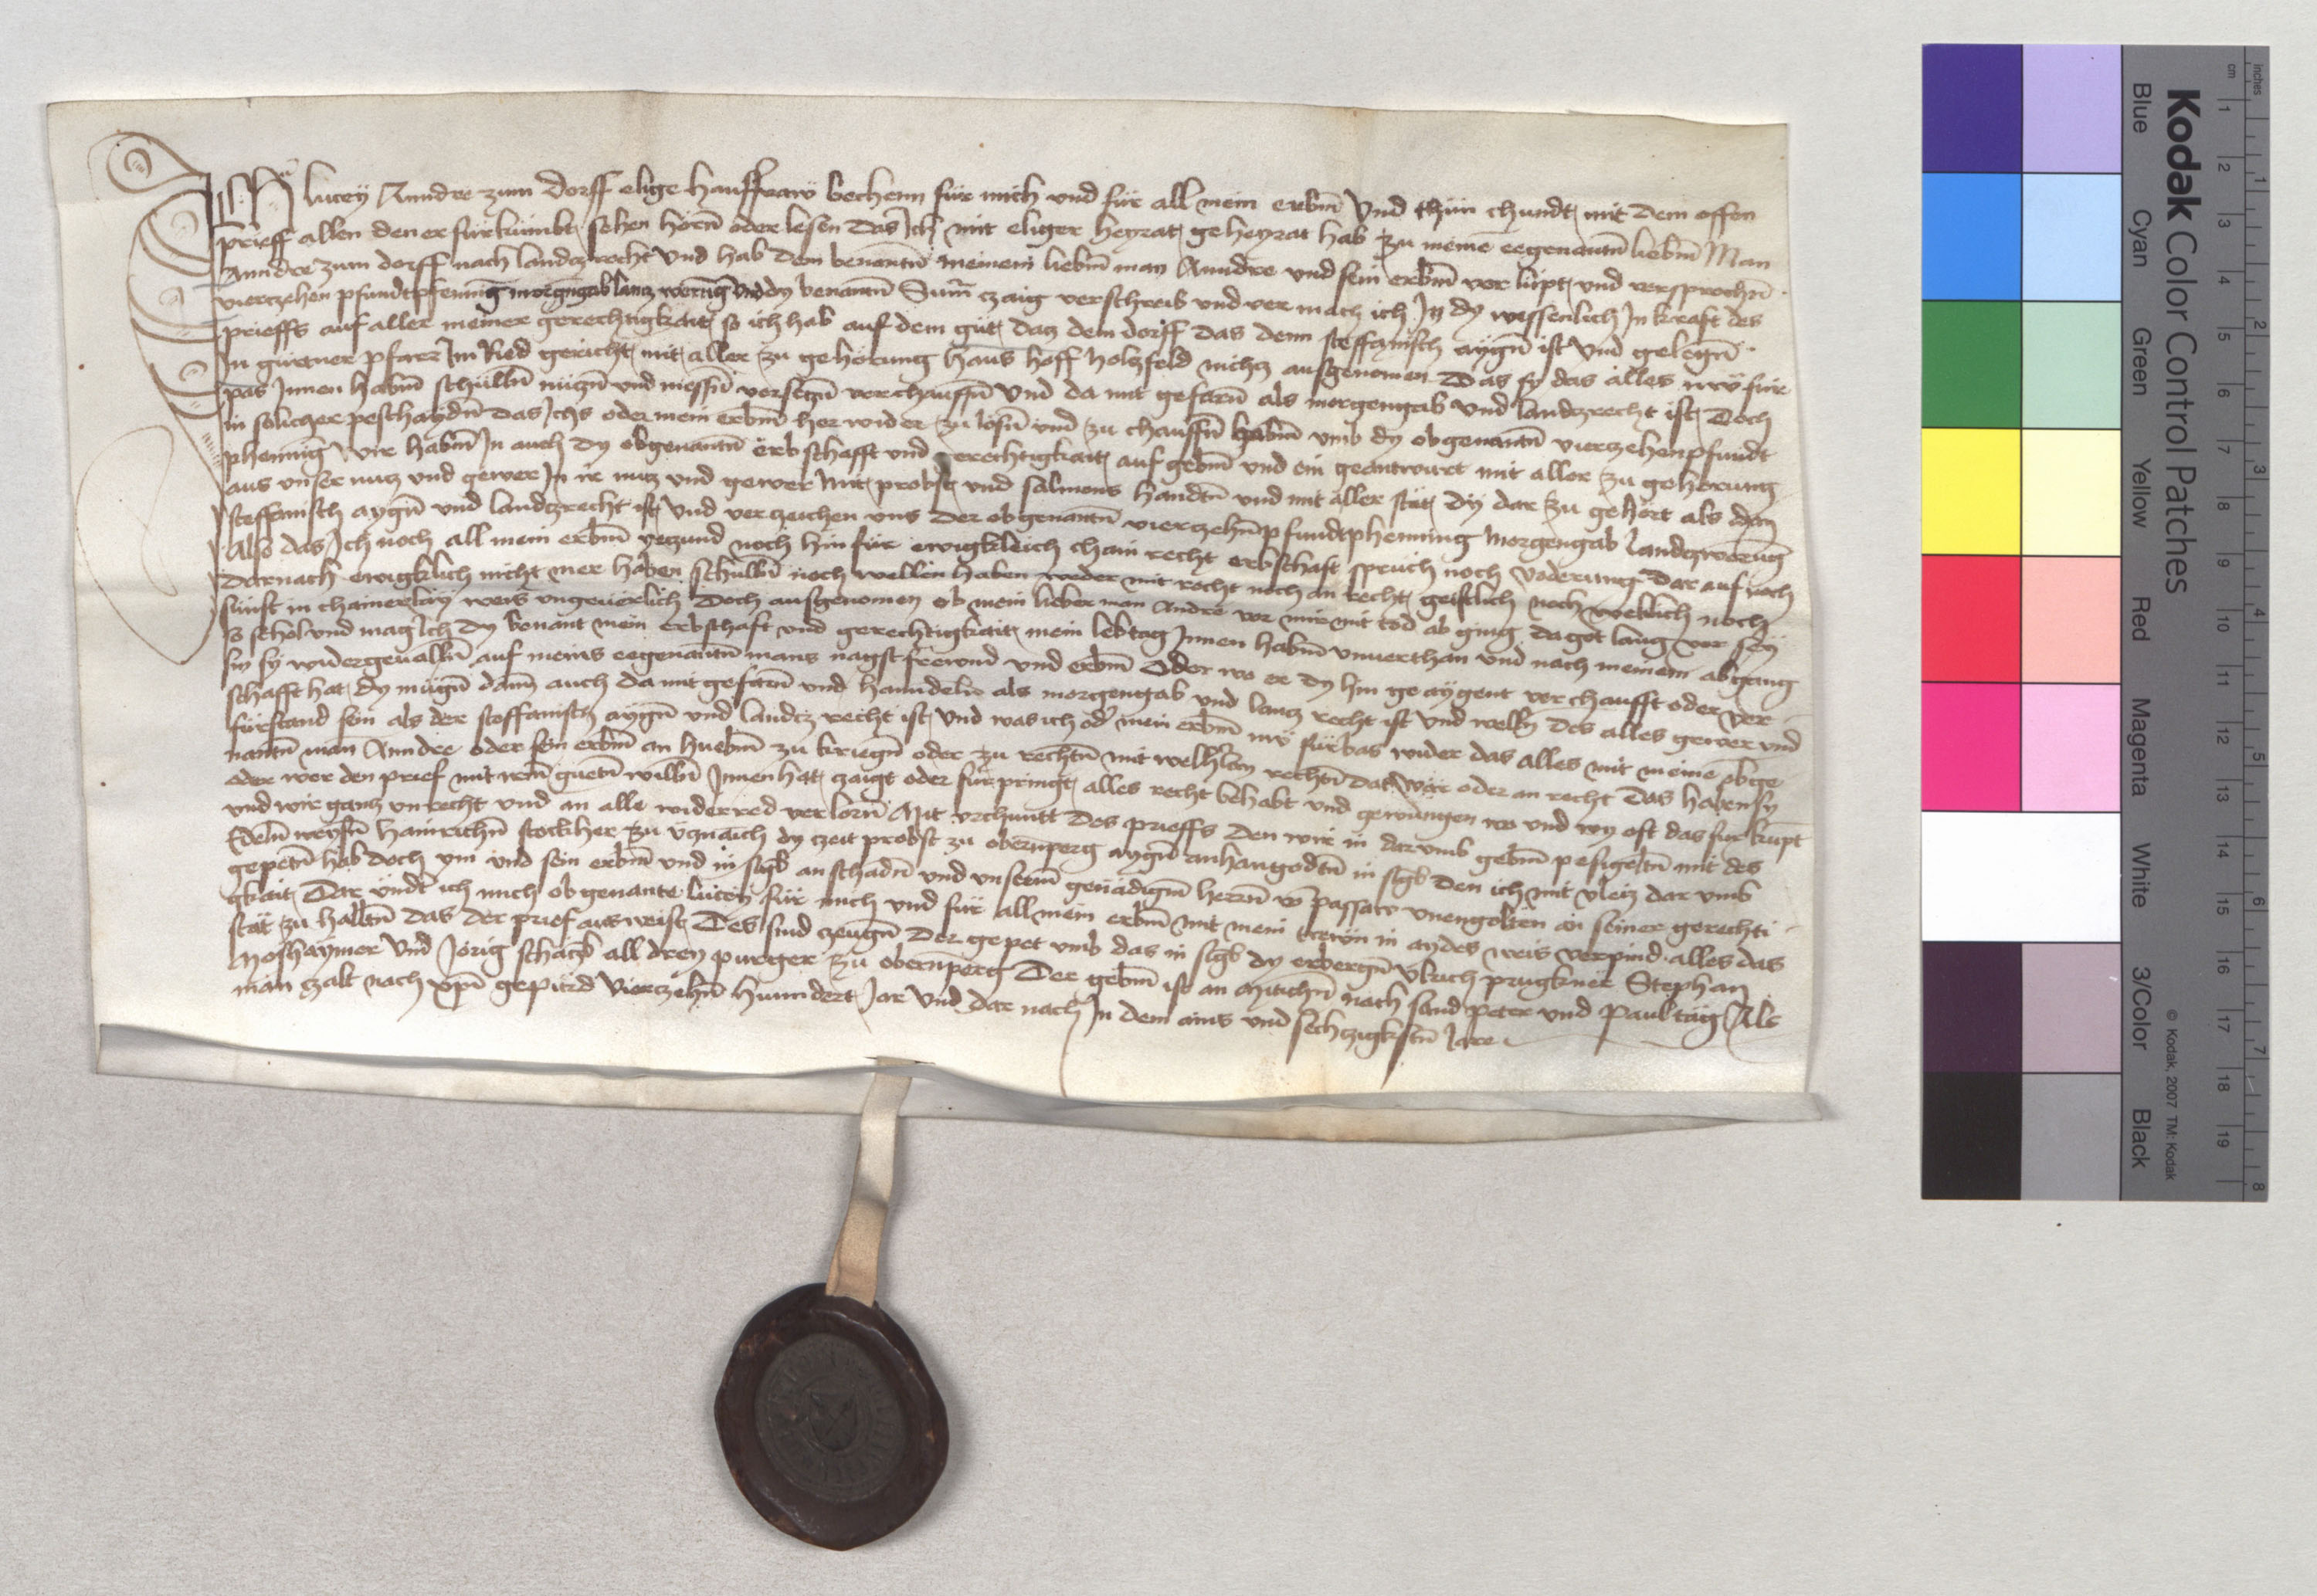 Ich lucey Anndre zum dorff elige hausffraw bechenn für mich vnd für all mein erbm̄ Vnd thün chundt mit dem offen
prieff allen den er fürkümbt sehen hörn̄ oder lesen das Ich mit eliger heyrat geheyrat hab zu meinē eegenantn̄ liebm̄ Man
Anndre zum dorff nach landcz recht Vnd hab dem benantn̄ meinem liebm̄ man Anndre vnd sein erbm̄ ver lüpt vnd versprochn̄
vierczehen pfundt pfenning morgngab lancz werūg vnd dy benantn̄ Sum̄ czaig verschreib vnd ver mach ich In dy wissenlich In kraft des
prieffs auf aller meiner gerechtigkait so ich hab auf dem güt dacz dem dorff das denn steffanisch aygn̄ ist Vnd gelegn̄
In gürtner pfarr Im Ried gericht mit aller zu gehörung haus hoff holcz feld nichcz ausgenomen Das sy das alles nw̄ für
pas Innen habm̄ schülln̄ nügn̄ vnd niessn̄ verseczn̄ verchauffn̄ Vnd da mit gefarn̄ als morgengab vnd landczrecht ist Doch
in solicher peschaydn̄ das Ichs oder mein erbm̄ her wider zu lösn̄ vnd zu chauffn̄ habm̄ vmb dy obgenantn̄ vierczehen pfundt
phenning Wir habm̄ In auch dy obgenantn̄ erbschafft vnd gerechtigkait auf gebm̄ vnd ein geantwurt mit aller zu gehörung
aus vnser nucz vnd gewer In ir nucz vnd gewer Mit probst vnd salmens handtn̄ vnd mit aller stät dy dar zu gehört als dan
steffanisch aygn̄ vnd landczrecht ist Vnd verczeichen vns der obgenantn̄ vierczehn̄ pfundt phenning Morgengab landczwerung
Also das Ich noch all mein erbm̄ yeczund noch hin für ewigkleich chain recht erbschaft sprüch noch voderung dar auf noch
darnach ewigklich nicht mer haben schulln̄ noch wellen haben weder mit recht noch an recht geistlich noch weltlich noch
sünst in chainerlay weis vngeuerlich Doch ausgenomen ob mein lieber man Andre vor mir mit tod ab ging da got lang vor sey
so schol vnd mag Ich dy benant mein erbschaft vnd gerechtigkait mein lebtag Innen habm̄ vnuerthan vnd nach meinem abgang
sin sy widergeualln̄ auf meins eegenantn̄ mans nagst frewnd vnd erbm̄ Oder wo er dy hin ge aygent verchaufft oder ver
schafft hat dy mügn̄ dann̄ auch da mit gefarn̄ vnd hanndeln als morgengab vnd lancz recht ist vnd welln̄ des alles gewer vnd
fürstand sein als der steffanisch aygn̄ vnd landcz recht ist Vnd was ich od̾ mein erbm̄ nw̄ fürbas wider das alles mit meinē obge
nantn̄ man Anndre oder sein erbm̄ an huebm̄ zu kriegn̄ oder zu rechtn̄ mit welhlay rechtn̄ das wär oder an recht Das haben sy
oder wer den prief mit irm̄ guetn̄ willn̄ Innen hat czaigt oder fürpringt alles recht behabt vnd gewungen wo vnd wy oft das fur kūpt
vnd wir gancz vnrecht vnd an alle widerred verlorn̄ Mit vrchuntt des prieffs den wir in dar vmb gebm̄ pesigeltn̄ mit des
Edeln̄ weysn̄ hainrichn̄ stockher zu dy czeit probst zu obernperg aygn̄ anhangndtn̄ in sigl̄ den ich mit vleiz dar vmb
gepetn̄ hab doch ym vnd sein erbm̄ vnd in sigl̄ an schadn̄ vnd vnserm̄ genädigm̄ hern̄ vō passaw vnengolten an seiner gerechti
gkait Dar vndt̾ ich mich obgenante lucey für mich vnd für all mein erbm̄ mit mein trewn in aydes weis verpind alles das
stät zu haltn̄ das der prief ausweist Des sind czeugn̄ der gepet vmb das in sigl̄ dy erbergn̄ vlrich prugkner Stephan
Moshaymer Vnd Jörig schätzl all dreÿ purger zu obernperg Der gebm̄ ist an Mitichn̄ nach sand peter vnd Paulstag Als
man czalt nach xpī gepürd Vierczehn̄ hunndert Jar Vnd dar nach In dem ains vnd sechczigkistn̄ Jare
Kodak Color Control Patches
Blue Cyan Green Yellow Red Magenta White 3/Color Black
© Kodak, 2007 TM: Kodak
cm 1 2 3 4 5 6 7 8 9 10 11 12 13 14 15 16 17 18 19
inches 1 2 3 4 5 6 7 8